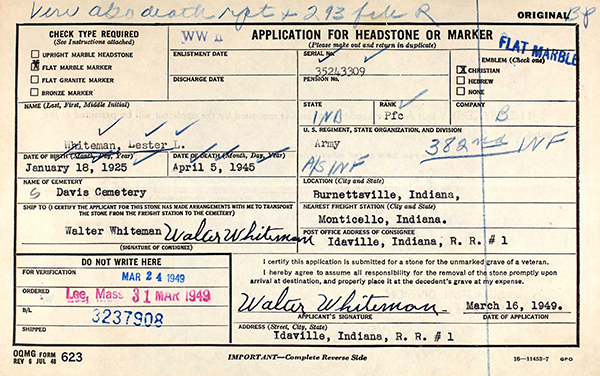 Veri abs death rpt + 293 file R
ORIGINAL
CHECK TYPE REQUIRED
(See Instructions attached)
UPRIGHT MARBLE HEADSTONE
X FLAT MARBLE MARKER
FLAT GRANITE MARKER
BRONZE MARKER
WW II
APPLICATION FOR HEADSTONE OR MARKER
(Please make out and return in duplicate)
ENLISTMENT DATE
DISCHARGE DATE
SERIAL No.
35243309
PENSION No.
EMBLEM (Check one)
FLAT MARBLE
X CHRISTIAN
HEBREW
NONE
NAME (Last, First, Middle Initial)
Whiteman, Lester L.
STATE
IND
RANK
Pfc
COMPANY
B
DATE OF BIRTH (Month, Day, Year)
January 18, 1925
DATE OF DEATH (Month, Day, Year)
April 5, 1945
U. S. REGIMENT, STATE ORGANIZATION, AND DIVISION
Army
382nd INF
A/S INF
NAME OF CEMETERY
Davis Cemetery
LOCATION (City and State)
Burnettsville, Indiana,
SHIP TO (I CERTIFY THE APPLICANT FOR THIS STONE HAS MADE ARRANGEMENTS WITH ME TO TRANSPORT THE STONE FROM THE FREIGHT STATION TO THE CEMETERY)
Walter Whiteman Walter Whiteman
(SIGNATURE OF CONSIGNEE)
NEAREST FREIGHT STATION (City and State)
Monticello, Indiana.
POST OFFICE ADDRESS OF CONSIGNEE
Idaville, Indiana, R. R. #1
DO NOT WRITE HERE
FOR VERIFICATION
MAR 24 1949
ORDERED
Lee, Mass 31 MAR 1949
B/L
3237908
SHIPPED
I certify this application is submitted for a stone for the unmarked grave of a veteran.
I hereby agree to assume all responsibility for the removal of the stone promptly upon
arrival at destination, and properly place it at the decedent's grave at my expense.
Walter Whiteman
March 16, 1949.
APPLICANT'S SIGNATURE
DATE OF APPLICATION
ADDRESS (Street, City, State)
Idaville, Indiana, R. R. #1
OQMG FORM 623
REV 6 JUL 48
IMPORTANT—Complete Reverse Side
16—11453-7 GPO